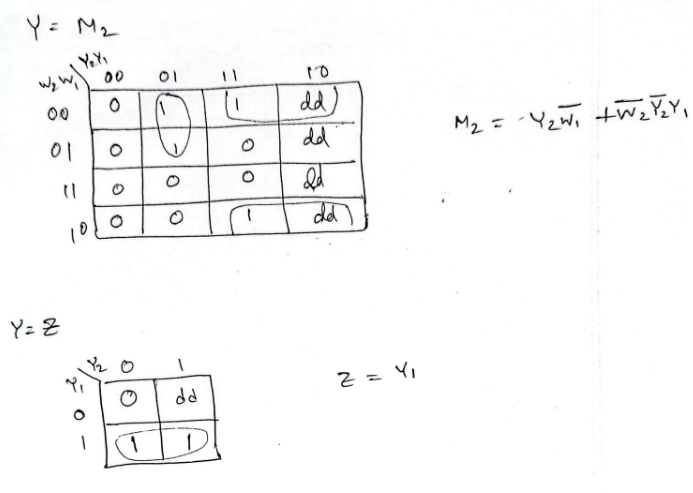 Y = M₂
Y₂Y₁
W₂W₁ 00 01 11 10
00 0 1 1 dd
01 0 1 0 dd
11 0 0 0 dd
10 0 0 1 dd
M₂ = Y₂W̅₁ + W̅₂Y̅₂Y₁
Y = Z
Y₂ 0 1
Y₁
0 0 dd
1 1 1
Z = Y₁